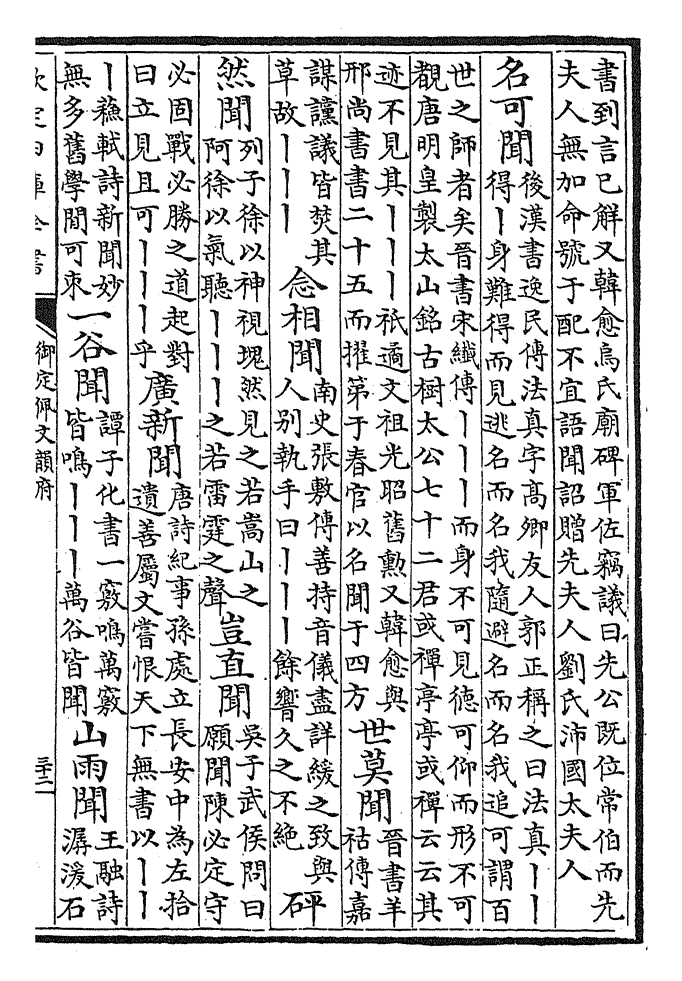 書到言已解又韓愈烏氏廟碑軍佐竊議曰先公既位常伯而先
夫人無加命號于配不宜語聞詔贈先夫人劉氏沛國太夫人
名可聞
後漢書逸民傳法真字高卿友人郭正稱之曰法真丨丨
得丨身難得而見逃名而名我隨避名而名我追可謂百
世之師者矣晉書宋纖傳丨丨丨而身不可見德可仰而形不可
覩唐明皇製太山銘古樹太公七十二君或禪亭亭或禪云云其
迹不見其丨丨丨祇遹文祖光昭舊勲又韓愈與
邢尚書書二十五而擢第于春官以名聞于四方
世莫聞
晉書羊
祜傳嘉
謀讜議皆焚其
草故丨丨丨
念相聞
南史張敷傳善持音儀盡詳緩之致與
人别執手曰丨丨丨餘響久之不絶
砰
然聞
列子徐以神視塊然見之若嵩山之
阿徐以氣聽丨丨丨之若雷霆之聲
豈直聞
吳子武侯問曰
願聞陳必定守
必固戰必勝之道起對
曰立見且可丨丨丨乎
廣新聞
唐詩紀事孫處立長安中為左拾
遺善屬文嘗恨天下無書以丨丨
丨蘓軾詩新聞妙
無多舊學閒可束
一谷聞
譚子化書一竅鳴萬竅
皆鳴丨丨丨萬谷皆聞
山雨聞
王融詩
潺湲石
欽定四庫全書
御定佩文韻府
三十二